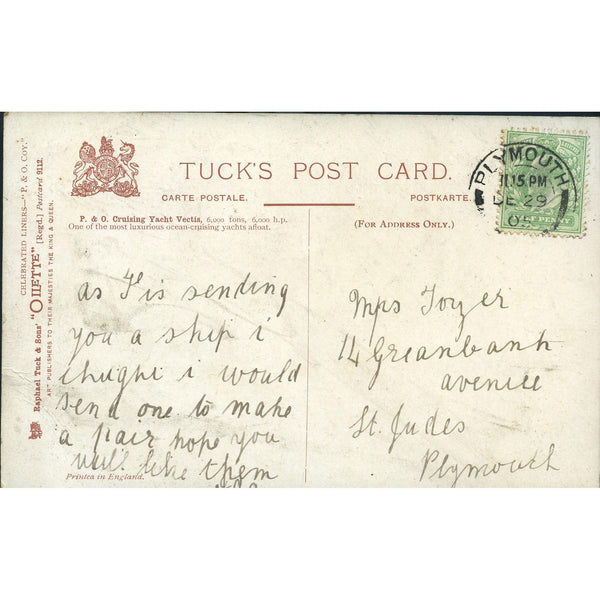 CELEBRATED LINERS—"P. & O. COY."
"OILETTE" [Regd.] Postcard 9112.
Raphael Tuck & Sons'
ART PUBLISHERS TO THEIR MAJESTIES THE KING & QUEEN.
TUCK'S POST CARD.
CARTE POSTALE.
POSTKARTE.
P. & O. Cruising Yacht Vectis, 6,000 tons, 6,000 h.p.
One of the most luxurious ocean-cruising yachts afloat.
(FOR ADDRESS ONLY.)
PLYMOUTH
11.15 PM
DE 29
05
HALF PENNY
as F is sending
you a ship i
thught i would
send one to make
a pair hope you
will like them
Mrs Tozer
14 Greanbank
avenice
St. Judes
Plymouth
Printed in England.